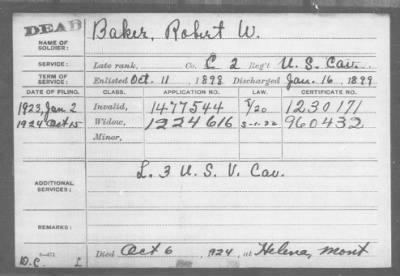 DEAD
NAME OF SOLDIER: Baker, Robert W.
SERVICE: Late rank, Co. C 2 Reg't U.S. Cav.
TERM OF SERVICE: Enlisted Oct. 11, 1898 Discharged Jan. 16, 1899
DATE OF FILING. CLASS. APPLICATION NO. LAW. CERTIFICATE NO.
1923, Jan. 2 Invalid, 1477544 5/20 1230171
1924 Oct 15 Widow, 1224616 5-1-22 960432
Minor,
ADDITIONAL SERVICES: L. 3 U.S.V. Cav.
REMARKS:
Died Oct 6, 1924, at Helena, Mont
D.C. L